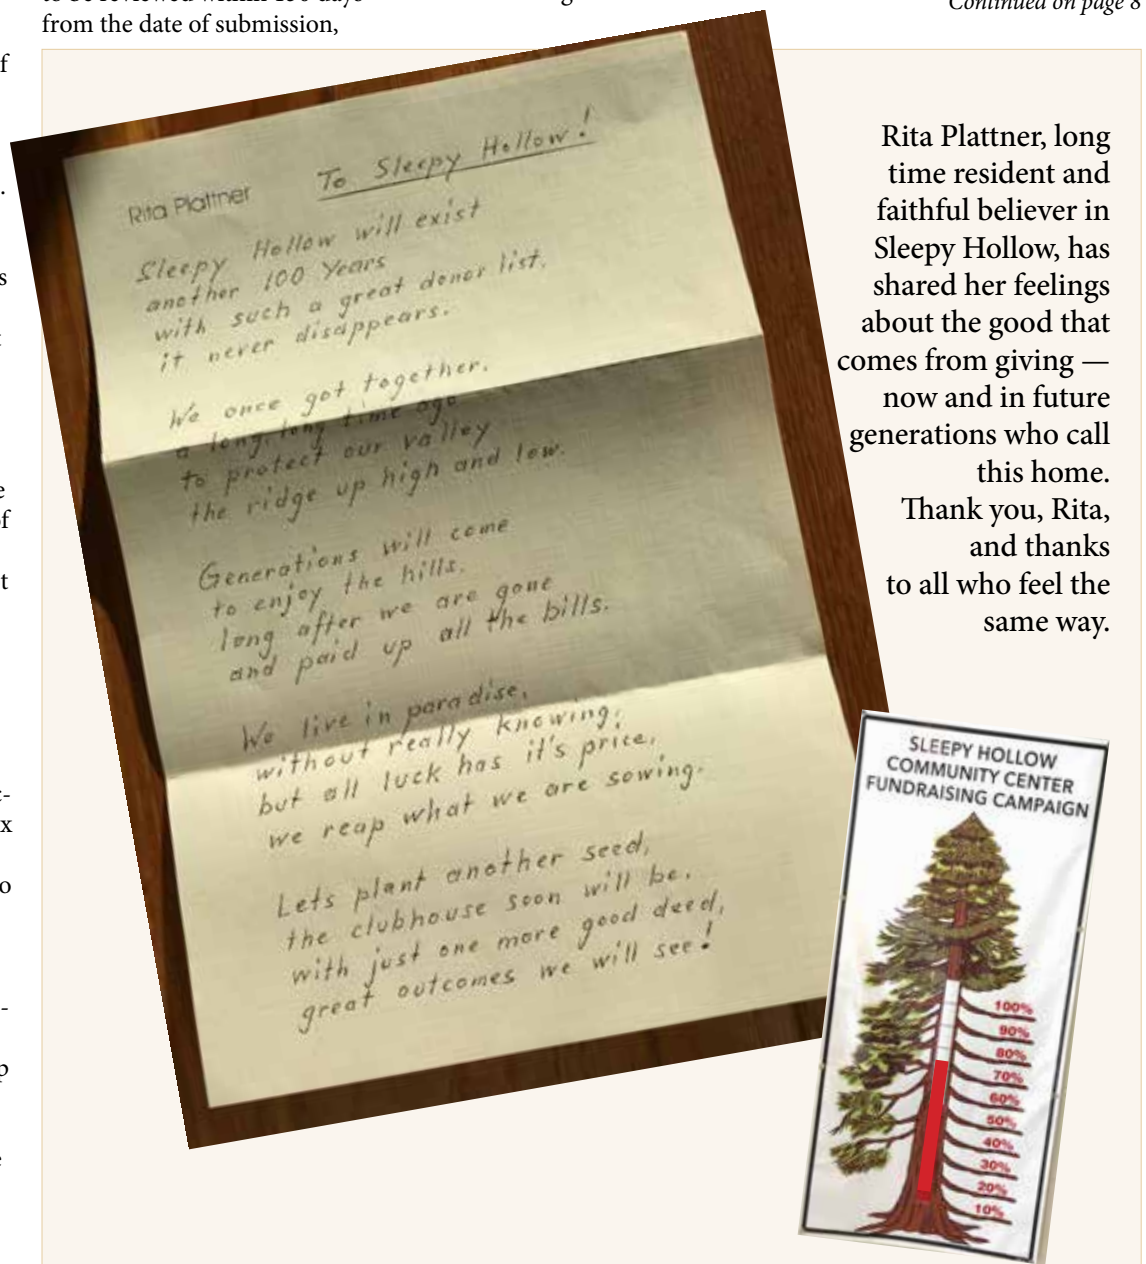 from the date of submission,
Continued on page 8
Rita Plattner
To Sleepy Hollow!
Sleepy Hollow will exist
another 100 Years
with such a great donor list,
it never disappears.
We once got together,
a long, long time ago
to protect our valley
the ridge up high and low.
Generations will come
to enjoy the hills,
long after we are gone
and paid up all the bills.
We live in paradise,
without really knowing,
but all luck has it's price,
we reap what we are sowing.
Lets plant another seed,
the clubhouse soon will be,
with just one more good deed,
great outcomes we will see!
Rita Plattner, long
time resident and
faithful believer in
Sleepy Hollow, has
shared her feelings
about the good that
comes from giving —
now and in future
generations who call
this home.
Thank you, Rita,
and thanks
to all who feel the
same way.
SLEEPY HOLLOW
COMMUNITY CENTER
FUNDRAISING CAMPAIGN
100%
90%
80%
70%
60%
50%
40%
30%
20%
10%